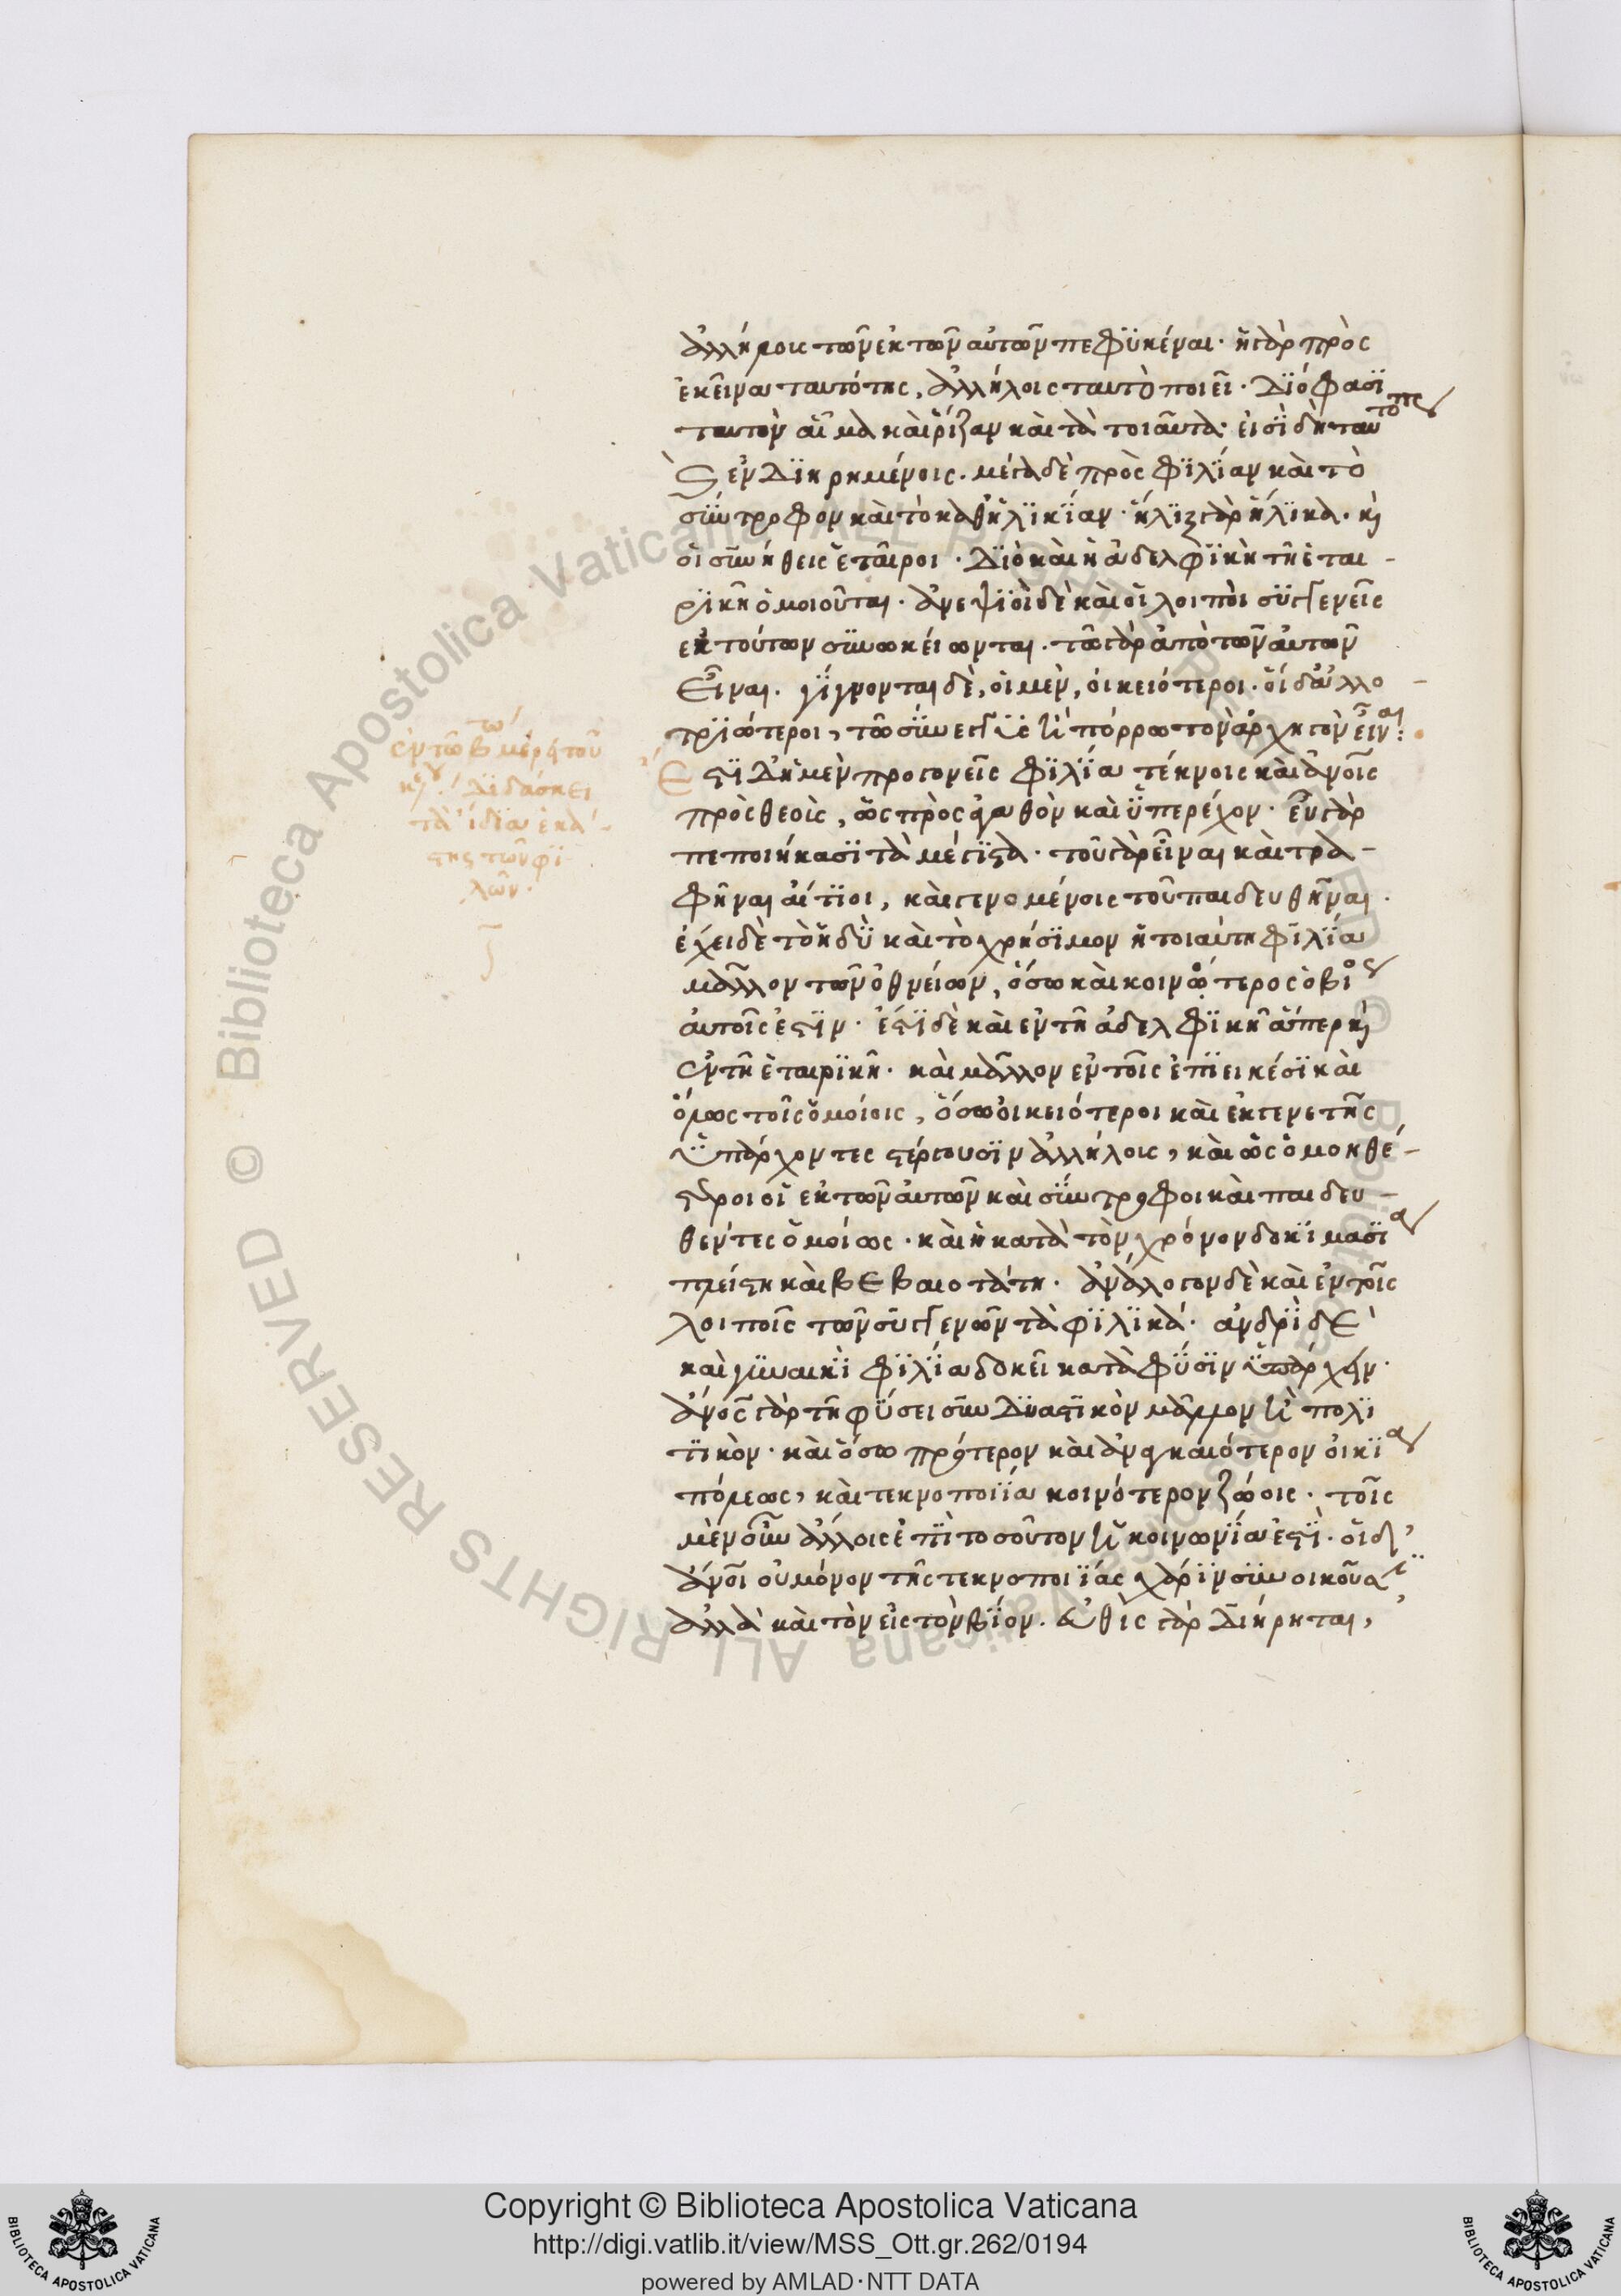 ἀλλήλοις τῶν ἐκ τῶν αὐτῶν πεφϋκέναι· ἡ γὰρ πρὸς
ἐκεῖνα ταυτότης, ἀλλήλοις ταυτὸ ποιεῖ· Διό φασϊ
ταυτὸν αἷμα καὶ ῥίζαν καὶ τὰ τοιαῦτα· εἰσϊ δὴ ταυτό πως
ἐν Δϊηρημένοις· μέγα δὲ πρὸς φϊλϊαν καὶ τὸ
σύντροφον καὶ τὸ καθ' ἡλϊκίαν· ἧλιξ γὰρ ἥλϊκα· κ
οἱ συνήθεις ἑταῖροι· Δϊὸ καὶ ἡ ἀδελφϊκὴ τῇ ἑται-
ρϊκῇ ὁμοιοῦται· ἀνεψϊοὶ δὲ καὶ οἱ λοιποὶ συγγενεῖς
ἐκ τούτων συνωκείωνται· τῷ γὰρ ἀπὸ τῶν αὐτῶν
εἶναι· γίγνονται δὲ, οἱ μὲν, οἰκειότεροι· οἱ δ' ἀλλο-
τρϊώτεροι, τῷ σύνεγγυς ἢ πόρρω τὸν ἀρχηγὸν εἶναι:
Εστϊ Δὴ μὲν πρὸς γονεῖς φϊλία τέκνοις καὶ ἀνοῖς
πρὸς θεοὶς, ὡς πρὸς ἀγαθὸν καὶ ὑπερέχον· εὖ γὰρ
πεποιήκασϊ τὰ μέγϊστα· τοῦ γὰρ εἶναι καὶ τρα-
φῆναι αἴτϊοι, καὶ γενομένοις τοῦ παιδευθῆναι·
ἔχει δὲ τὸ ἡδὺ καὶ τὸ χρήσϊμον ἡ τοιαύτη φϊλία
μᾶλλον τῶν ὀθνείων, ὅσω καὶ κοινότερος ὁ βίος
αὐτοῖς ἐστϊν· ἔστϊ δὲ καὶ ἐν τῇ ἀδελφϊκῇ ἅπερ κ
ἐν τῇ ἑταιρϊκῇ· καὶ μᾶλλον ἐν τοῖς ἐπϊεικέσϊ καὶ
ὅλως τοῖς ὁμοίοις, ὅσω οἰκειότεροι καὶ ἐκ γενετῆς
ὑπάρχοντες στέργουσϊν ἀλλήλοις, καὶ ὡς ὁμοηθέ-
στεροι οἱ ἐκ τῶν αὐτῶν καὶ σύντροφοι καὶ παιδευ-
θέντες ὁμοίως· καὶ ἡ κατὰ τὸν χρόνον δοκϊμασία
πλείστη καὶ βεβαιοτάτη· ἀνάλογον δὲ καὶ ἐν τοῖς
λοιποῖς τῶν συγγενῶν τὰ φϊλϊκά· ἀνδρὶ δὲ
καὶ γυναικὶ φϊλία δοκεῖ κατὰ φύσϊν ὑπάρχειν·
ἄνος γὰρ τῇ φύσει συνδυαστϊκὸν μᾶλλον ἢ πολϊ
τϊκὸν· καὶ ὅσω πρότερον καὶ ἀναγκαιότερον οἰκία
πόλεως, καὶ τεκνοποιία κοινότερον ζώοις· τοῖς
μὲν οὖν ἄλλοις ἐπὶ τοσοῦτον ἡ κοινωνία ἐστϊ· οἱ δ'
ἄνοι οὐ μόνον τῆς τεκνοποιίας χάρϊν συνοικοῦσϊ
ἀλλὰ καὶ τὸν εἰς τὸν βίον· εὐθὺς γὰρ Διήρηται,
ἐν τῶ β τω μέρει τοῦ
διδάσκει
τὰ ἴδϊα ἑκά-
στης τῶν φϊ-
λῶν·
Copyright © Biblioteca Apostolica Vaticana
http://digi.vatlib.it/view/MSS_Ott.gr.262/0194
powered by AMLAD·NTT DATA
BIBLIOTECA APOSTOLICA VATICANA
BIBLIOTECA APOSTOLICA VATICANA
© Biblioteca Apostolica Vaticana ALL RIGHTS RESERVED
© Biblioteca Apostolica Vaticana ALL RIGHTS RESERVED